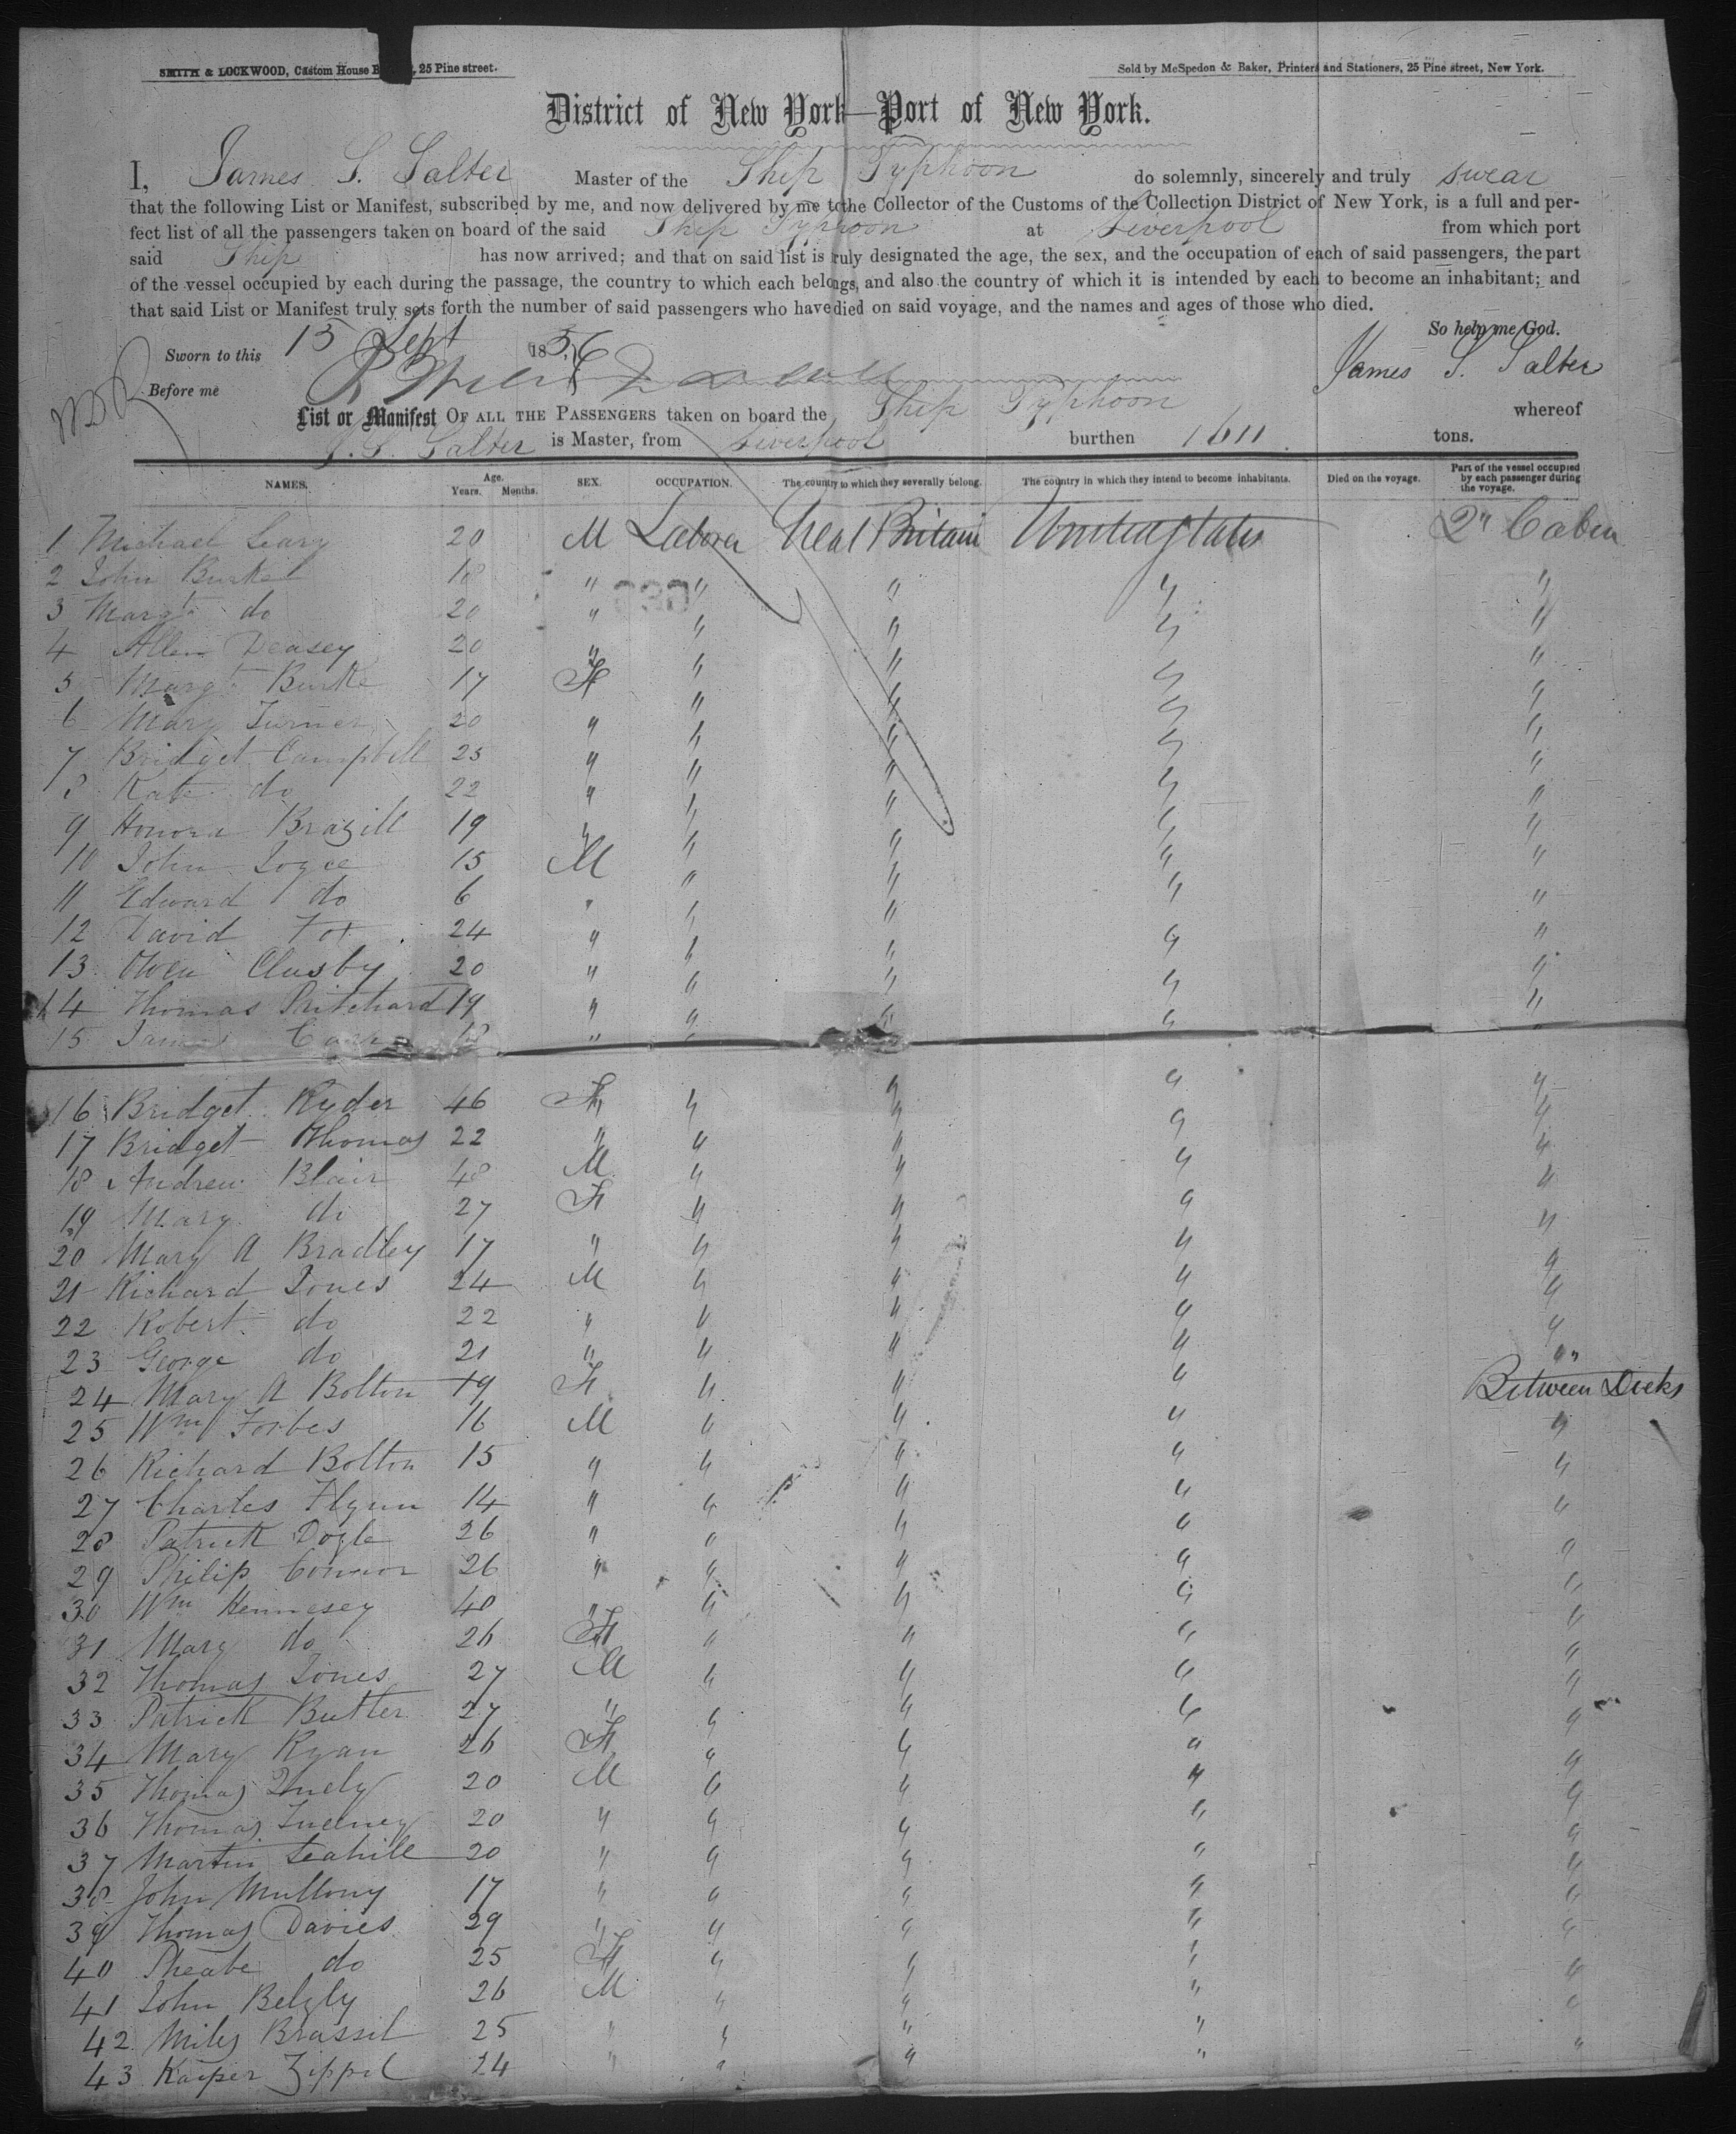 SMITH & LOCKWOOD, Custom House 25 Pine street.
Sold by McSpedon & Baker, Printers and Stationers, 25 Pine street, New York.
District of New York—Port of New York.
I, James S. Salter Master of the Ship Typhoon do solemnly, sincerely and truly swear
that the following List or Manifest, subscribed by me, and now delivered by me to the Collector of the Customs of the Collection District of New York, is a full and per-
fect list of all the passengers taken on board of the said Ship Typhoon at Liverpool from which port
said Ship has now arrived; and that on said list is truly designated the age, the sex, and the occupation of each of said passengers, the part
of the vessel occupied by each during the passage, the country to which each belongs, and also the country of which it is intended by each to become an inhabitant; and
that said List or Manifest truly sets forth the number of said passengers who have died on said voyage, and the names and ages of those who died.
So help me God.
Sworn to this 15 Sept 1856
James S. Salter
Before me
List or Manifest OF ALL THE PASSENGERS taken on board the Ship Typhoon whereof
J. S. Salter is Master, from Liverpool burthen 1611 tons.
NAMES. Age. Years. Months. SEX. OCCUPATION. The country to which they severally belong. The country in which they intend to become inhabitants. Died on the voyage. Part of the vessel occupied by each passenger during the voyage.
1 Michael Leary 20 M Laborer Great Britain United States 2" Cabin
2 John Burke 18 " " " " "
3 Margt do 20 " " " " "
4 Allen Deasey 20 " " " " "
5 Margt Burke 17 F " " " "
6 Mary Turner 20 " " " " "
7 Bridget Campbell 25 " " " " "
8 Kate do 22 " " " " "
9 Honora Brazill 19 " " " " "
10 John Joyce 15 M " " " "
11 Edward do 6 " " " " "
12 David Fox 24 " " " " "
13 Owen Clusby 20 " " " " "
14 Thomas Pritchard 19 " " " " "
15 James 18 " " " " "
16 Bridget Ryder 46 F " " " "
17 Bridget Thomas 22 " " " " "
18 Andrew Blair 48 M " " " "
19 Mary do 27 F " " " "
20 Mary A Bradley 17 " " " " "
21 Richard Jones 24 M " " " "
22 Robert do 22 " " " " "
23 George do 21 " " " " "
24 Mary A Bolton 19 F " " " Between Decks
25 Wm Forbes 16 M " " " "
26 Richard Bolton 15 " " " " "
27 Charles Flynn 14 " " " " "
28 Patrick Dogle 26 " " " " "
29 Philip Connor 26 " " " " "
30 Wm Hennesey 40 " " " " "
31 Mary do 26 F " " " "
32 Thomas Jones 27 M " " " "
33 Patrick Butler 27 " " " " "
34 Mary Ryan 26 F " " " "
35 Thomas 20 M " " " "
36 Thomas 20 " " " " "
37 Martin Leahill 20 " " " " "
38 John Mullony 17 " " " " "
39 Thomas Davies 29 " " " " "
40 Pheabe do 25 F " " " "
41 John Belzly 26 M " " " "
42 Miles Brassil 25 " " " " "
43 Kasper Zippel 24 " " " "